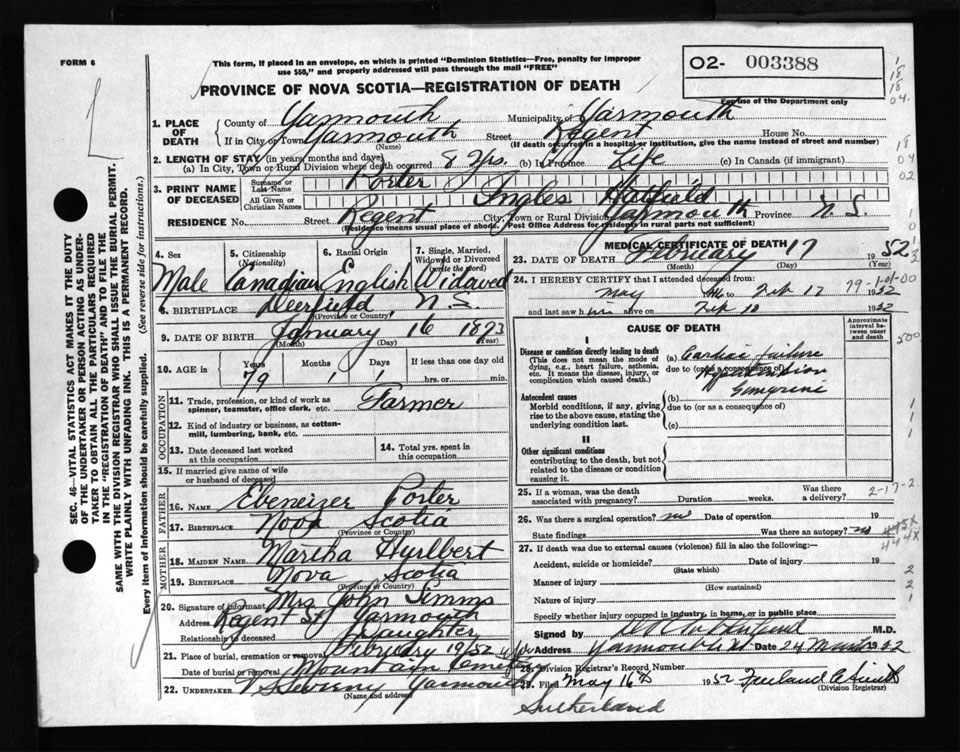 FORM 6
This form, if placed in an envelope, on which is printed "Dominion Statistics—Free, penalty for improper
use $50," and properly addressed will pass through the mail "FREE"
O2- 003388
For use of the Department only
PROVINCE OF NOVA SCOTIA—REGISTRATION OF DEATH
1. PLACE OF DEATH
County of Yarmouth Municipality of Yarmouth
If in City or Town Yarmouth Street Regent House No.
(Name) (If death occurred in a hospital or institution, give the name instead of street and number)
2. LENGTH OF STAY (in years, months and days)
(a) In City, Town or Rural Division where death occurred 8 Yrs. (b) In Province Life (c) In Canada (if immigrant)
3. PRINT NAME OF DECEASED
Surname or Last Name Porter
All Given or Christian Names Ingles Hatfield
RESIDENCE No. Street Regent City, Town or Rural Division Yarmouth Province N.S.
(Residence means usual place of abode. Post Office Address for residents in rural parts not sufficient)
4. Sex Male
5. Citizenship (Nationality) Canadian
6. Racial Origin English
7. Single, Married, Widowed or Divorced (write the word) Widowed
8. BIRTHPLACE Deerfield, N.S.
(Province or Country)
9. DATE OF BIRTH January 16 1873
(Month) (Day) (Year)
10. AGE in Years 79 Months 1 Days 1 If less than one day old hrs. or min.
OCCUPATION
11. Trade, profession, or kind of work as
spinner, teamster, office clerk, etc. Farmer
12. Kind of industry or business, as cotton-
mill, lumbering, bank, etc.
13. Date deceased last worked
at this occupation
14. Total yrs. spent in
this occupation
15. If married give name of wife
or husband of deceased
FATHER
16. NAME Ebeneizer Porter
17. BIRTHPLACE Nova Scotia
(Province or Country)
MOTHER
18. MAIDEN NAME Martha Hurlbert
19. BIRTHPLACE Nova Scotia
(Province or Country)
20. Signature of informant Mrs John Simms
Address Regent St, Yarmouth
Relationship to deceased Daughter
21. Place of burial, cremation or removal
Date of burial or removal February 19/52
Mountain Cemetery
22. UNDERTAKER V Sweeny Yarmouth
(Name and address)
MEDICAL CERTIFICATE OF DEATH
23. DATE OF DEATH February 17 1952
(Month) (Day) (Year)
24. I HEREBY CERTIFY that I attended deceased from
May to Feb 17 1952
and last saw him alive on Feb 1952
CAUSE OF DEATH
Approximate interval between onset and death
I
Disease or condition directly leading to death
(This does not mean the mode of
dying, e.g., heart failure, asthenia,
etc. It means the disease, injury, or
complication which caused death.)
(a) Cardiac failure
due to (or as a consequence of)
Hypertension
Gangrene
Antecedent causes
Morbid conditions, if any, giving
rise to the above cause, stating the
underlying condition last.
(b)
due to (or as a consequence of)
(c)
II
Other significant conditions
contributing to the death, but not
related to the disease or condition
causing it.
25. If a woman, was the death
associated with pregnancy? Duration weeks. Was there a delivery?
26. Was there a surgical operation? no Date of operation 19
State findings Was there an autopsy? no
27. If death was due to external causes (violence) fill in also the following:—
Accident, suicide or homicide? Date of injury 19
(State which)
Manner of injury
(How sustained)
Nature of injury
Specify whether injury occurred in industry, in home, or in public place
Signed by M.D.
Address Yarmouth Date 24 March 1952
28. Division Registrar's Record Number
29. Filed May 16th 1952
(Division Registrar)
Sutherland
79-1-01-00
500
2-17-2
SEC. 46—VITAL STATISTICS ACT MAKES IT THE DUTY
OF THE UNDERTAKER OR PERSON ACTING AS UNDER-
TAKER TO OBTAIN ALL THE PARTICULARS REQUIRED
IN THE "REGISTRATION OF DEATH" AND TO FILE THE
SAME WITH THE DIVISION REGISTRAR WHO SHALL ISSUE THE BURIAL PERMIT.
WRITE PLAINLY WITH UNFADING INK. THIS IS A PERMANENT RECORD.
Every item of information should be carefully supplied. (See reverse side for instructions.)